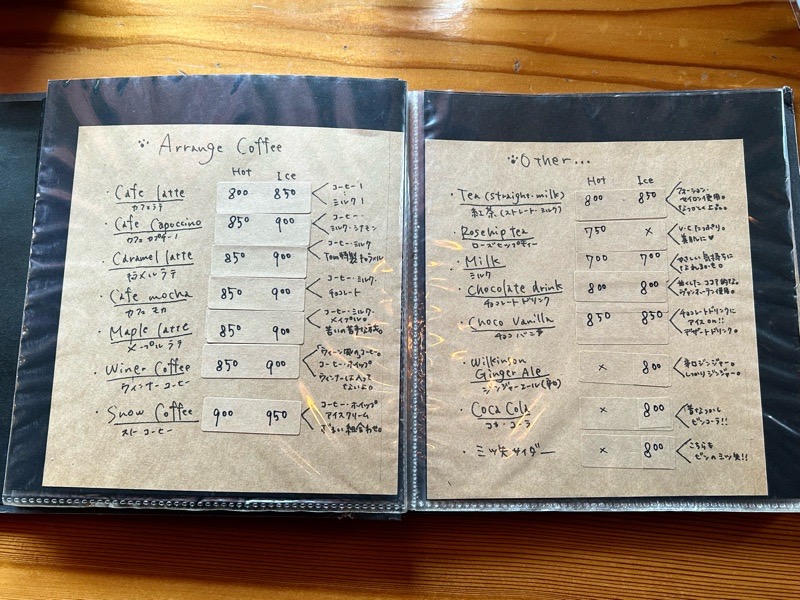 Arrange Coffee
Hot Ice
・Cafe latte 800 850 コーヒー1
カフェラテ ミルク1
・Cafe Capoccino 850 900 コーヒー・
カフェ カプチーノ ミルク・シナモン
・Caramel latte 850 900 コーヒー・ミルク
キャラメルラテ Tom特製キャラメル
・Cafe mocha 850 900 コーヒー・ミルク・
カフェ モカ チョコレート
・Maple latte 850 900 コーヒー・ミルク・
メープルラテ メイプル。
苦いの苦手な方も。
・Winer Coffee 850 900 ウィーン風のコーヒー。
ウィンナーコーヒー コーヒー・ホイップ
ウィンナーは入って
ないよ。
・Snow Coffee 900 950 コーヒー・ホイップ
スノーコーヒー アイスクリーム
ずるい組合わせ。
Other...
Hot Ice
・Tea (straight・milk) 800 850
紅茶 (ストレート・ミルク) セイロン使用。
・Rosehip tea 750 × V.Cたっぷり。
ローズヒップティー 美肌に
・Milk 700 700 やさしい気持ちに
ミルク なれるかも。
・Chocolate drink 800 800
チョコレートドリンク 使用。
・Choco Vanilla 850 850 チョコレートドリンクに
チョコバニラ アイスon!!
デザートドリンク。
・Wilkinson
Ginger Ale × 800 辛口ジンジャー。
ジンジャーエール(辛口) しっかりジンジャー。
・Coca Cola × 800 昔なつかし
コカ・コーラ ビンコーラ!!
・ミツ矢サイダー × 800 こちらも
ビンのミツ矢!!